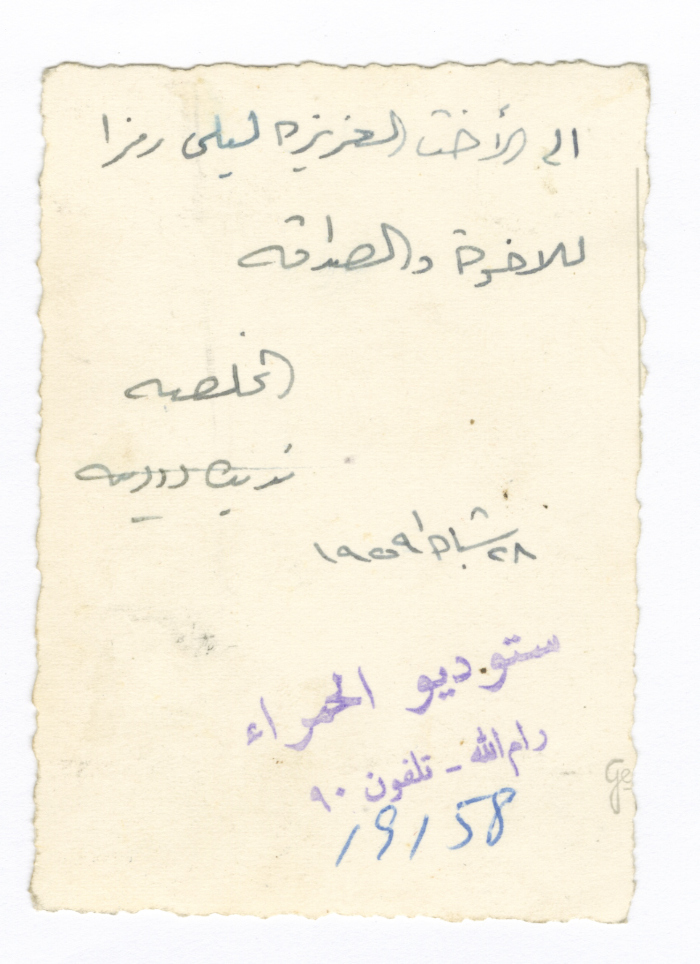 الى الأخت العزيزه ليلى رمزا
للاخوة والصداقه
المخلصه
٢٨ شباط ١٩٥٩
ستوديو الحمراء
رام الله - تلفون ٩٠
19158